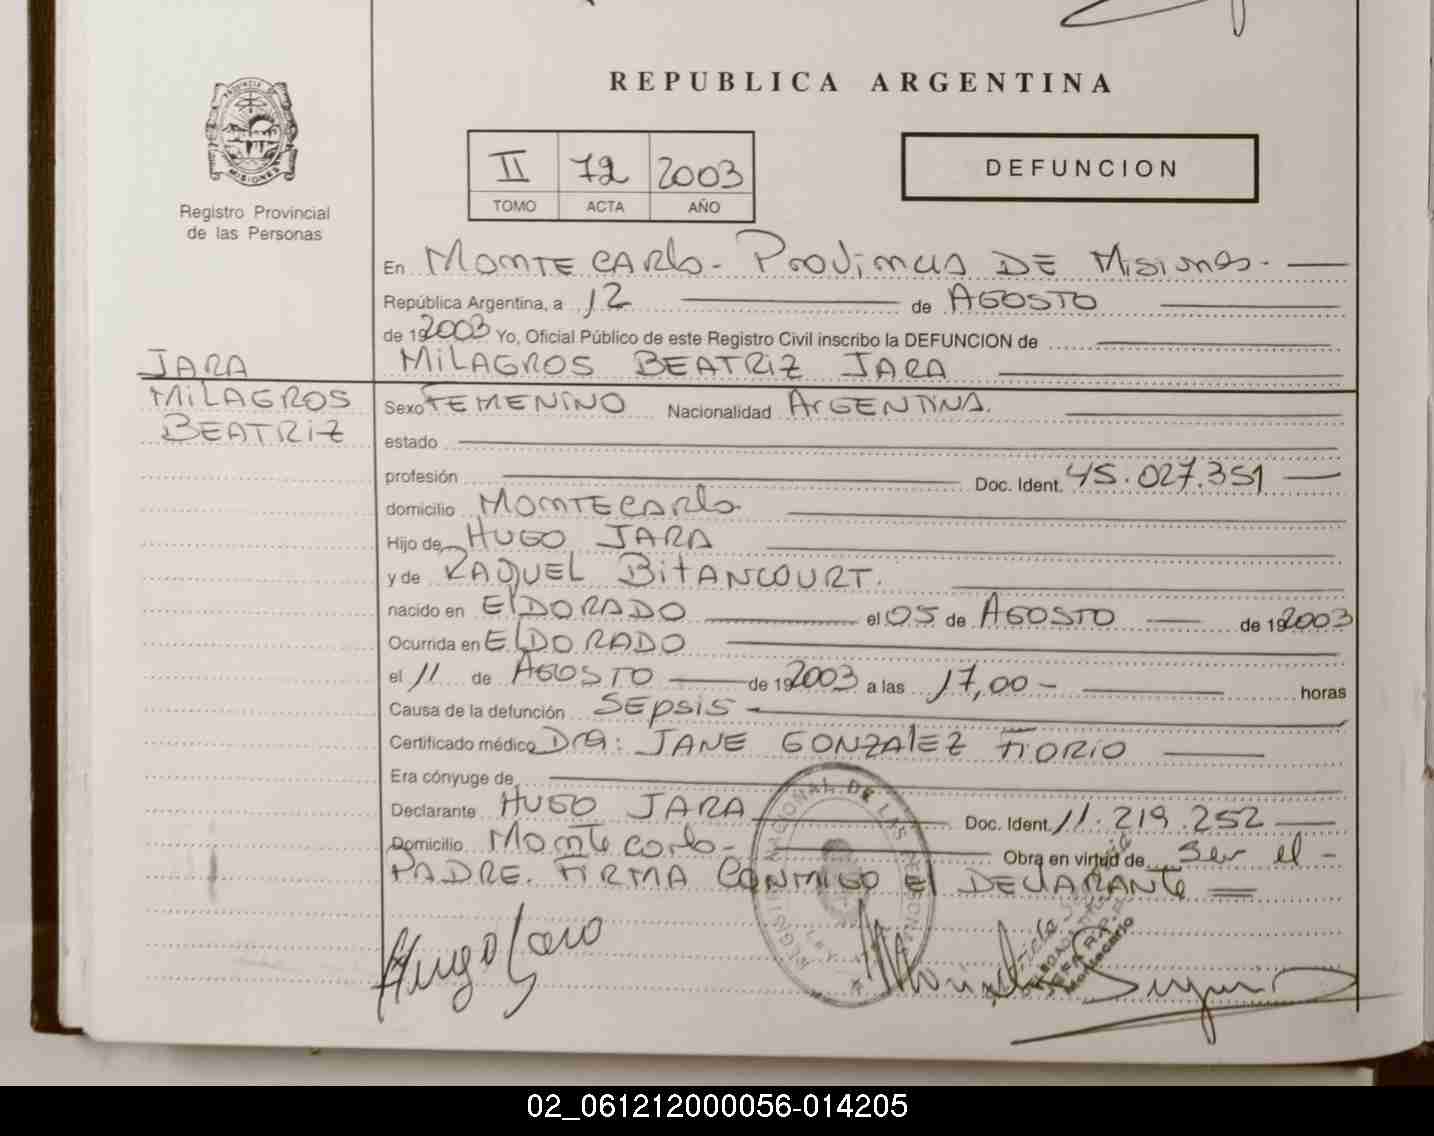 REPUBLICA ARGENTINA
PROVINCIA DE
MISIONES
Registro Provincial
de las Personas
II 72 2003
TOMO ACTA AÑO
DEFUNCION
En MONTECARLO - PROVINCIAS DE MISIONES -
República Argentina, a 12 de AGOSTO
de 192003 Yo, Oficial Público de este Registro Civil inscribo la DEFUNCION de
MILAGROS BEATRIZ JARA
JARA
MILAGROS
BEATRIZ
Sexo FEMENINO Nacionalidad ARGENTINA.
estado
profesión Doc. Ident. 45.027.351
domicilio MONTECARLO
Hijo de HUGO JARA
y de RAQUEL BITANCOURT.
nacido en ELDORADO el 05 de AGOSTO de 192003
Ocurrida en ELDORADO
el 11 de AGOSTO de 192003 a las 17,00 - horas
Causa de la defunción SEPSIS -
Certificado médico DRA: JANE GONZALEZ FIORIO
Era cónyuge de
Declarante HUGO JARA Doc. Ident. 11.219.252
Domicilio MONTECARLO - Obra en virtud de SER EL -
PADRE. FIRMA CONMIGO EL DECLARANTE =
Hugo Jara
REGISTRO NACIONAL DE LAS PERSONAS
Montecarlo
02_061212000056-014205